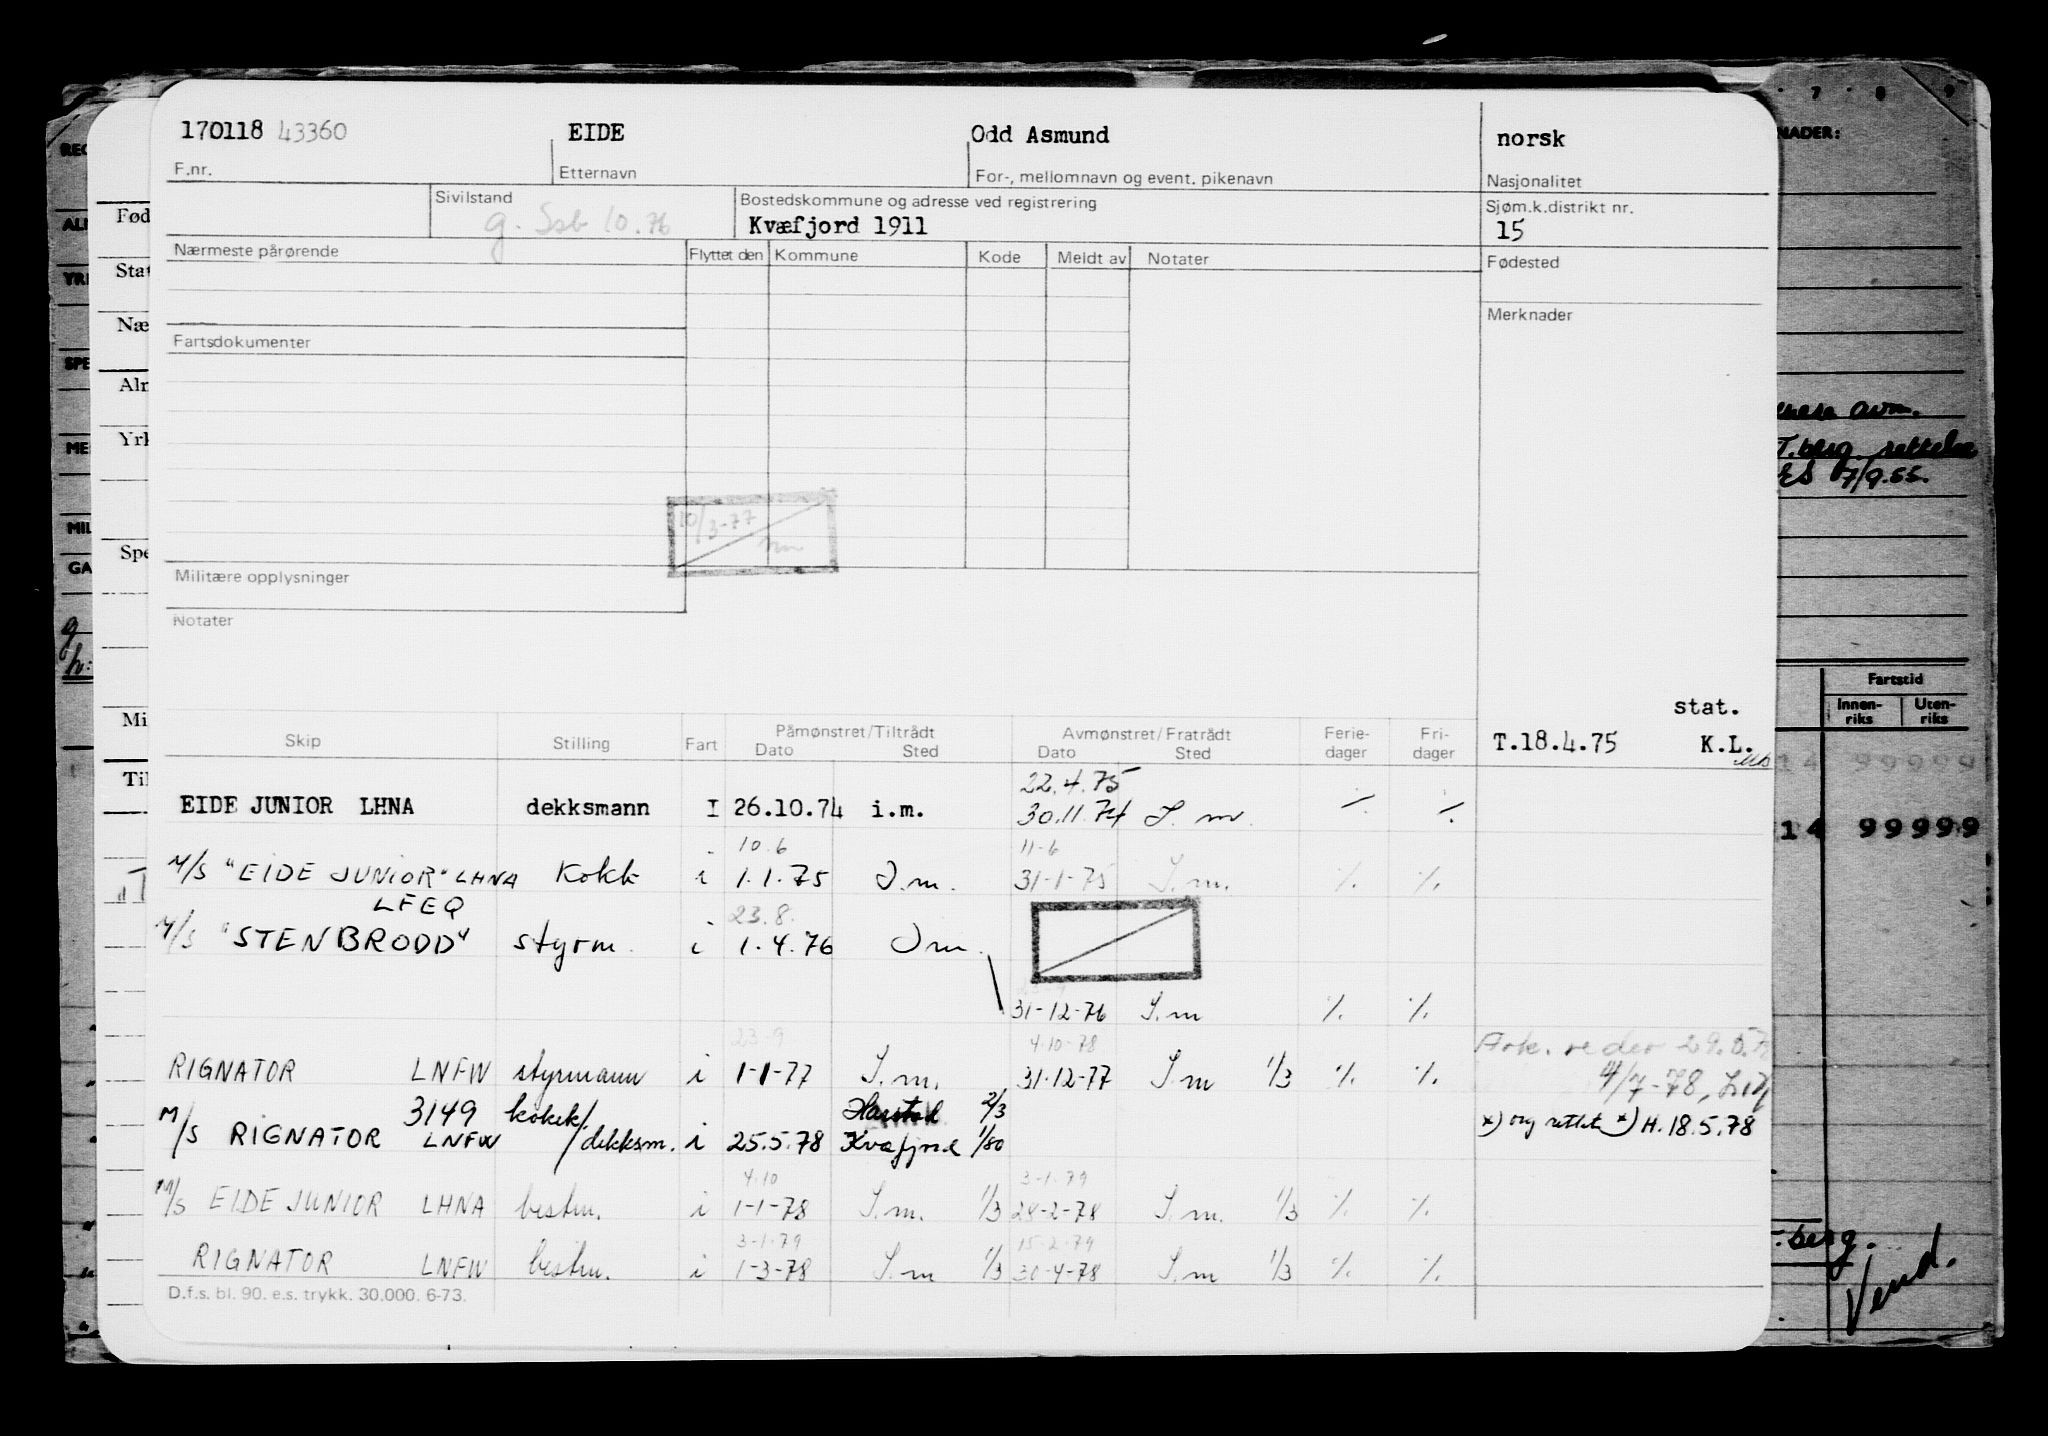 170118 43360 EIDE Odd Asmund norsk
F.nr. Etternavn For-, mellomnavn og event. pikenavn Nasjonalitet
Sivilstand Bostedskommune og adresse ved registrering Sjøm.k.distrikt nr.
g. Ssb 10.76 Kvæfjord 1911 15
Nærmeste pårørende Flyttet den Kommune Kode Meldt av Notater Fødested
Merknader
Fartsdokumenter
10/3-77
Militære opplysninger
Notater
stat.
Skip Stilling Fart Påmønstret/Tiltrådt Dato Sted Avmønstret/Fratrådt Dato Sted Ferie-dager Fri-dager T.18.4.75 K.L.
22.4.75
EIDE JUNIOR LHNA dekksmann I 26.10.74 i.m. 30.11.74 I.m. ./. ./.
10.6 11-6
M/S "EIDE JUNIOR" LHNA Kokk i 1.1.75 I.m. 31-1-75 I.m. ./. ./.
LFEQ 23.8.
M/S "STENBRODD" styrm. i 1.4.76 Im.
31-12-76 I.m ./. ./.
23-9 4.10-78
RIGNATOR LNFW styrmann i 1-1-77 I.m. 31.12-77 I.m 1/3 ./. ./.
4/7-78,
3149 kokk/ Harstad 2/3
M/S RIGNATOR LNFW dekksm. i 25.5.78 Kvæfjord 1/80 x) org rettet x) H.18.5.78
4.10 3-1-79
M/S EIDE JUNIOR LHNA bestm. i 1-1-78 I.m. 1/3 28-2-78 I.m. 1/3 ./. ./.
3-1.79 15-2.79
RIGNATOR LNFW bestm. i 1-3-78 I.m 1/3 30-4-78 I.m 1/3 ./. ./.
D.f.s. bl. 90. e.s. trykk. 30.000. 6-73.
Fød
Stat
Næ
Alr
Yrk
Spe
Mi
Til
REG
ALM
YRK
SPE
ME
MIL
GA
7 8 9
NADER:
avm.
T.berg. rettelse
7/9.55.
Fartstid
Innen-riks Uten-riks
14 99999
14 99999
berg.
Vend.